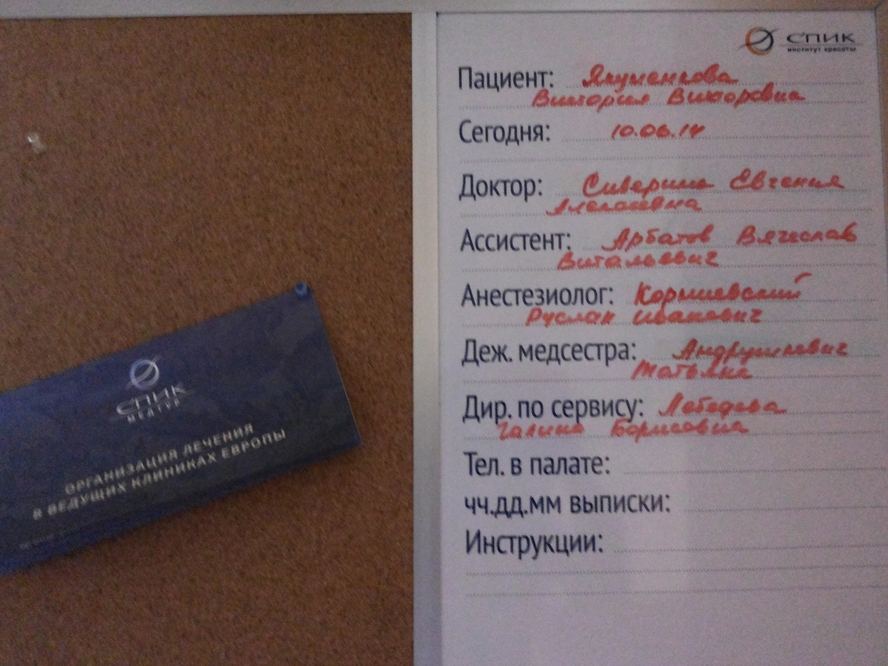 СПИК
институт красоты
Пациент: Якуменкова
Виктория Викторовна
Сегодня: 10.06.14
Доктор: Евгения
Алексеевна
Ассистент: Арбатов Вячеслав
Витальевич
Анестезиолог:
Руслан Иванович
Деж. медсестра: Андрушкевич
Татьяна
Дир. по сервису: Лебедева
Галина Борисовна
Тел. в палате:
чч.дд.мм выписки:
Инструкции:
СПИК
МЕДТУР
ОРГАНИЗАЦИЯ ЛЕЧЕНИЯ
В ВЕДУЩИХ КЛИНИКАХ ЕВРОПЫ